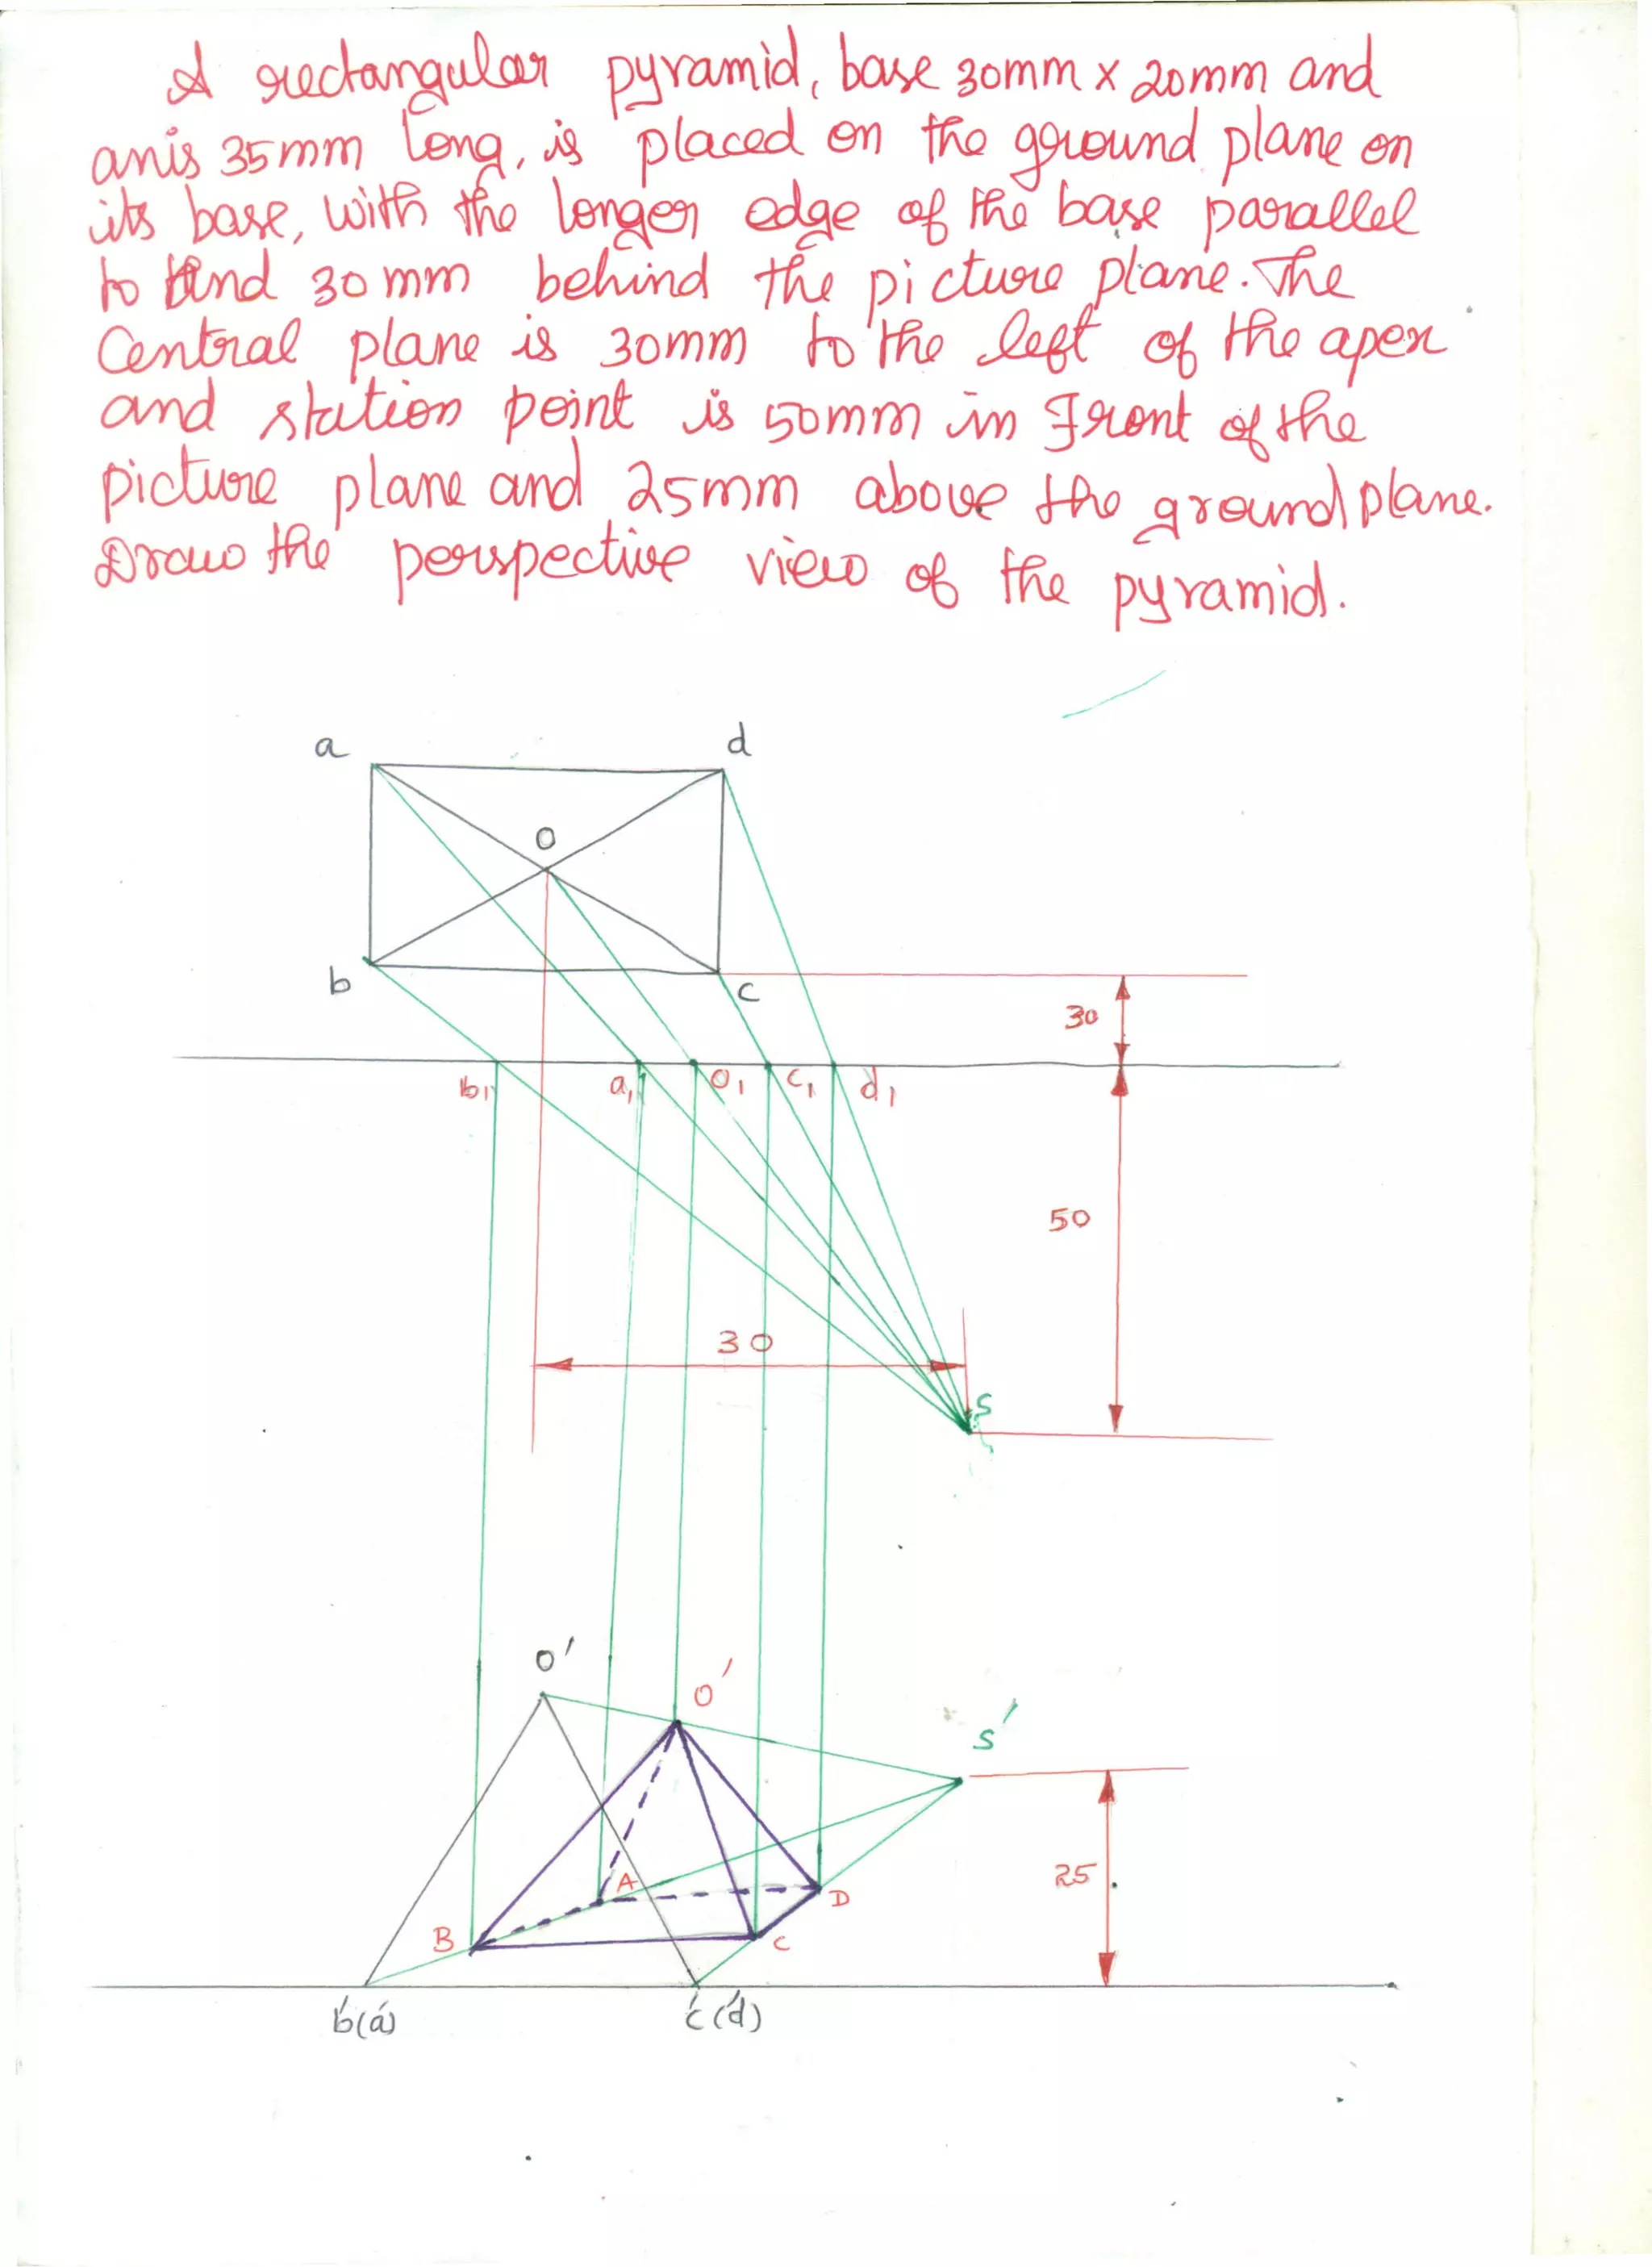 A rectangular pyramid, base 30mm x 20mm and
anis 35mm long, is placed on the ground plane on
its base, with the longer edge of the base parallel
to and 30mm behind the picture plane. The
Central plane is 30mm to the left of the apex
and station point is 50mm in Front of the
picture plane and 25mm above the ground plane.
Draw the perspective view of the pyramid.
a
d
o
b
c
30
b1
a1
o1
c1
d1
50
30
s
o'
o'
s'
A
25
D
B
c
b'(a')
c'(d')